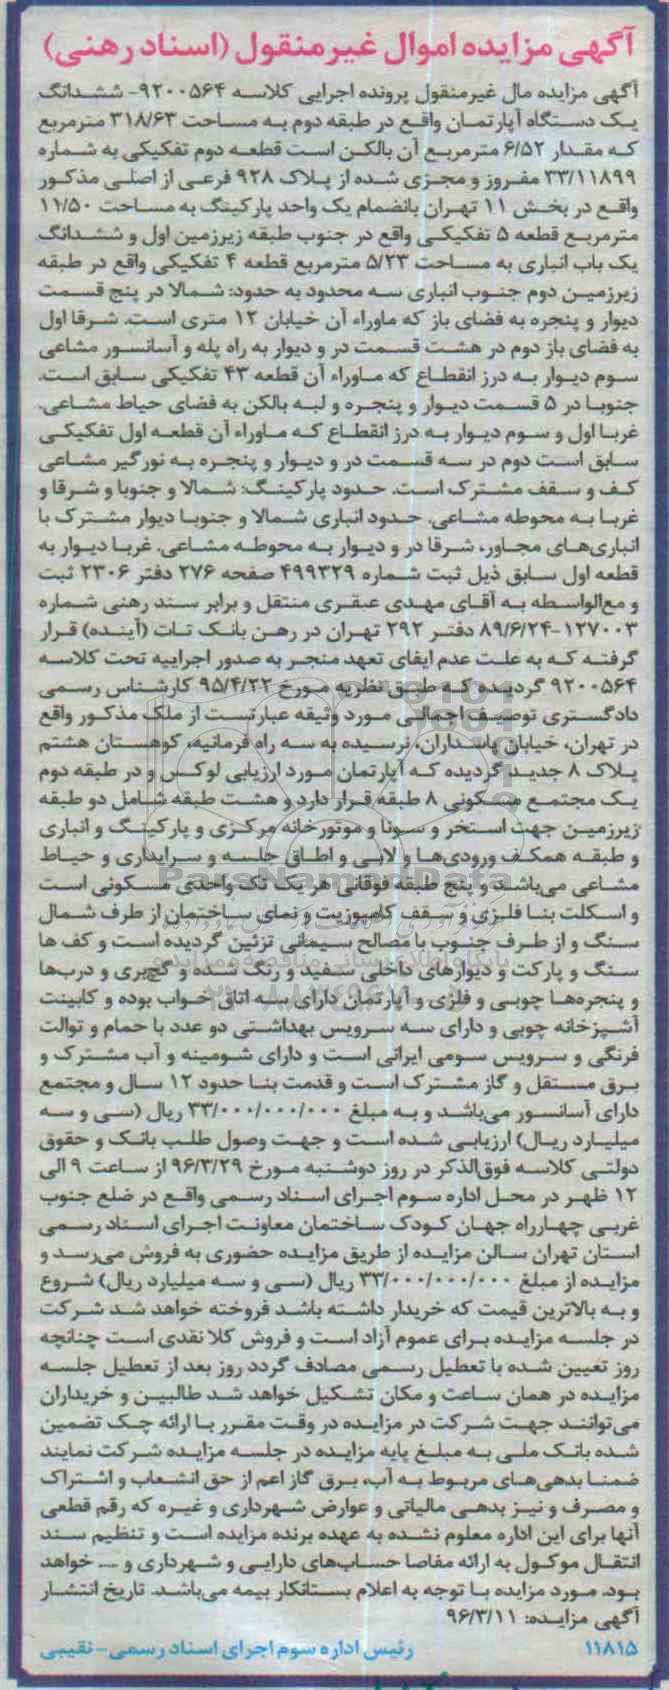 آگهی مزایده اموال غیرمنقول (اسناد رهنی)
آگهی مزایده مال غیرمنقول پرونده اجرایی کلاسه ۹۲۰۰۵۶۴- ششدانگ
یک دستگاه آپارتمان واقع در طبقه دوم به مساحت ۳۱۸/۶۳ مترمربع
که مقدار ۶/۵۲ مترمربع آن بالکن است قطعه دوم تفکیکی به شماره
۳۳/۱۱۸۹۹ مفروز و مجزی شده از پلاک ۹۲۸ فرعی از اصلی مذکور
واقع در بخش ۱۱ تهران بانضمام یک واحد پارکینگ به مساحت ۱۱/۵۰
مترمربع قطعه ۵ تفکیکی واقع در جنوب طبقه زیرزمین اول و ششدانگ
یک باب انباری به مساحت ۵/۲۳ مترمربع قطعه ۴ تفکیکی واقع در طبقه
زیرزمین دوم جنوب انباری سه محدود به حدود: شمالا در پنج قسمت
دیوار و پنجره به فضای باز که ماوراء آن خیابان ۱۲ متری است. شرقا اول
به فضای باز دوم در هشت قسمت در و دیوار به راه پله و آسانسور مشاعی
سوم دیوار به درز انقطاع که ماوراء آن قطعه ۴۳ تفکیکی سابق است.
جنوبا در ۵ قسمت دیوار و پنجره و لبه بالکن به فضای حیاط مشاعی.
غربا اول و سوم دیوار به درز انقطاع که ماوراء آن قطعه اول تفکیکی
سابق است دوم در سه قسمت در و دیوار و پنجره به نورگیر مشاعی
کف و سقف مشترک است. حدود پارکینگ: شمالا و جنوبا و شرقا و
غربا به محوطه مشاعی. حدود انباری شمالا و جنوبا دیوار مشترک با
انباری‌های مجاور، شرقا در و دیوار به محوطه مشاعی. غربا دیوار به
قطعه اول سابق ذیل ثبت شماره ۴۹۹۳۲۹ صفحه ۲۷۶ دفتر ۲۳۰۶ ثبت
و مع‌الواسطه به آقای مهدی عبقری منتقل و برابر سند رهنی شماره
۱۲۷۰۰۳-۸۹/۶/۲۴ دفتر ۲۹۲ تهران در رهن بانک تات (آینده) قرار
گرفته که به علت عدم ایفای تعهد منجر به صدور اجراییه تحت کلاسه
۹۲۰۰۵۶۴ گردیده که طبق نظریه مورخ ۹۵/۴/۲۲ کارشناس رسمی
دادگستری توصیف اجمالی مورد وثیقه عبارتست از ملک مذکور واقع
در تهران، خیابان پاسداران، نرسیده به سه راه فرمانیه، کوهستان هشتم
پلاک ۸ جدید گردیده که آپارتمان مورد ارزیابی لوکس و در طبقه دوم
یک مجتمع مسکونی ۸ طبقه قرار دارد و هشت طبقه شامل دو طبقه
زیرزمین جهت استخر و سونا و موتورخانه مرکزی و پارکینگ و انباری
و طبقه همکف ورودی‌ها و لابی و اطاق جلسه و سرایداری و حیاط
مشاعی می‌باشد و پنج طبقه فوقانی هر یک تک واحدی مسکونی است
و اسکلت بنا فلزی و سقف کامپوزیت و نمای ساختمان از طرف شمال
سنگ و از طرف جنوب با مصالح سیمانی تزئین گردیده است و کف ها
سنگ و پارکت و دیوارهای داخلی سفید و رنگ شده و گچبری و درب‌ها
و پنجره‌ها چوبی و فلزی و آپارتمان دارای سه اتاق خواب بوده و کابینت
آشپزخانه چوبی و دارای سه سرویس بهداشتی دو عدد با حمام و توالت
فرنگی و سرویس سومی ایرانی است و دارای شومینه و آب مشترک و
برق مستقل و گاز مشترک است و قدمت بنا حدود ۱۲ سال و مجتمع
دارای آسانسور می‌باشد و به مبلغ ۳۳/۰۰۰/۰۰۰/۰۰۰ ریال (سی و سه
میلیارد ریال) ارزیابی شده است و جهت وصول طلب بانک و حقوق
دولتی کلاسه فوق‌الذکر در روز دوشنبه مورخ ۹۶/۳/۲۹ از ساعت ۹ الی
۱۲ ظهر در محل اداره سوم اجرای اسناد رسمی واقع در ضلع جنوب
غربی چهارراه جهان کودک ساختمان معاونت اجرای اسناد رسمی
استان تهران سالن مزایده از طریق مزایده حضوری به فروش می‌رسد و
مزایده از مبلغ ۳۳/۰۰۰/۰۰۰/۰۰۰ ریال (سی و سه میلیارد ریال) شروع
و به بالاترین قیمت که خریدار داشته باشد فروخته خواهد شد شرکت
در جلسه مزایده برای عموم آزاد است و فروش کلا نقدی است چنانچه
روز تعیین شده با تعطیل رسمی مصادف گردد روز بعد از تعطیل جلسه
مزایده در همان ساعت و مکان تشکیل خواهد شد طالبین و خریداران
می‌توانند جهت شرکت در مزایده در وقت مقرر با ارائه چک تضمین
شده بانک ملی به مبلغ پایه مزایده در جلسه مزایده شرکت نمایند
ضمنا بدهی‌های مربوط به آب، برق گاز اعم از حق انشعاب و اشتراک
و مصرف و نیز بدهی مالیاتی و عوارض شهرداری و غیره که رقم قطعی
آنها برای این اداره معلوم نشده به عهده برنده مزایده است و تنظیم سند
انتقال موکول به ارائه مفاصا حساب‌های دارایی و شهرداری و .... خواهد
بود. مورد مزایده با توجه به اعلام بستانکار بیمه می‌باشد. تاریخ انتشار
آگهی مزایده: ۹۶/۳/۱۱
۱۱۸۱۵ رئیس اداره سوم اجرای اسناد رسمی- نقیبی
ParsNamadData